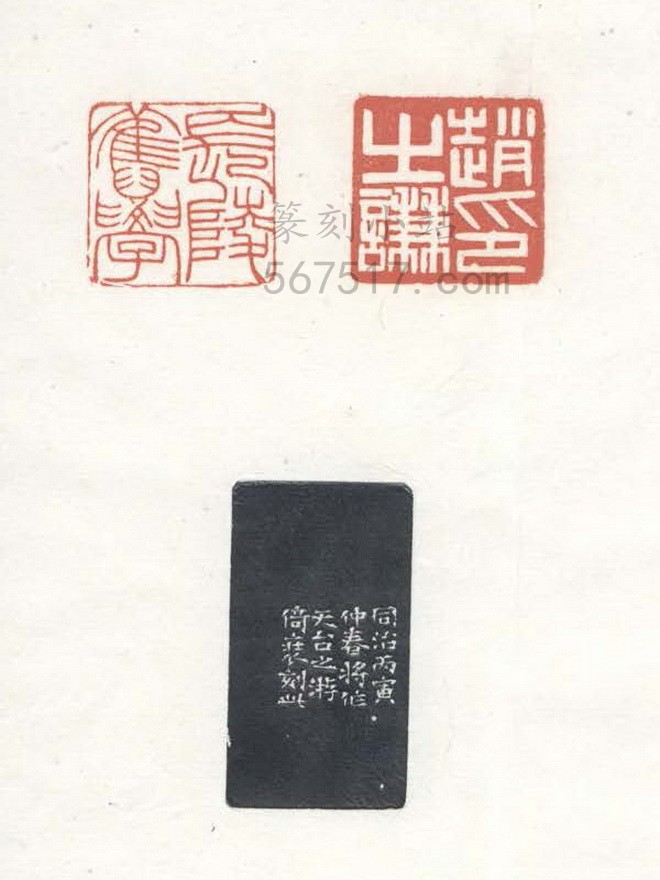 趙印
之謙
長陵
舊學
篆刻小站
567517.com
同治丙寅
仲春將作
天台之游
倚裝刻此